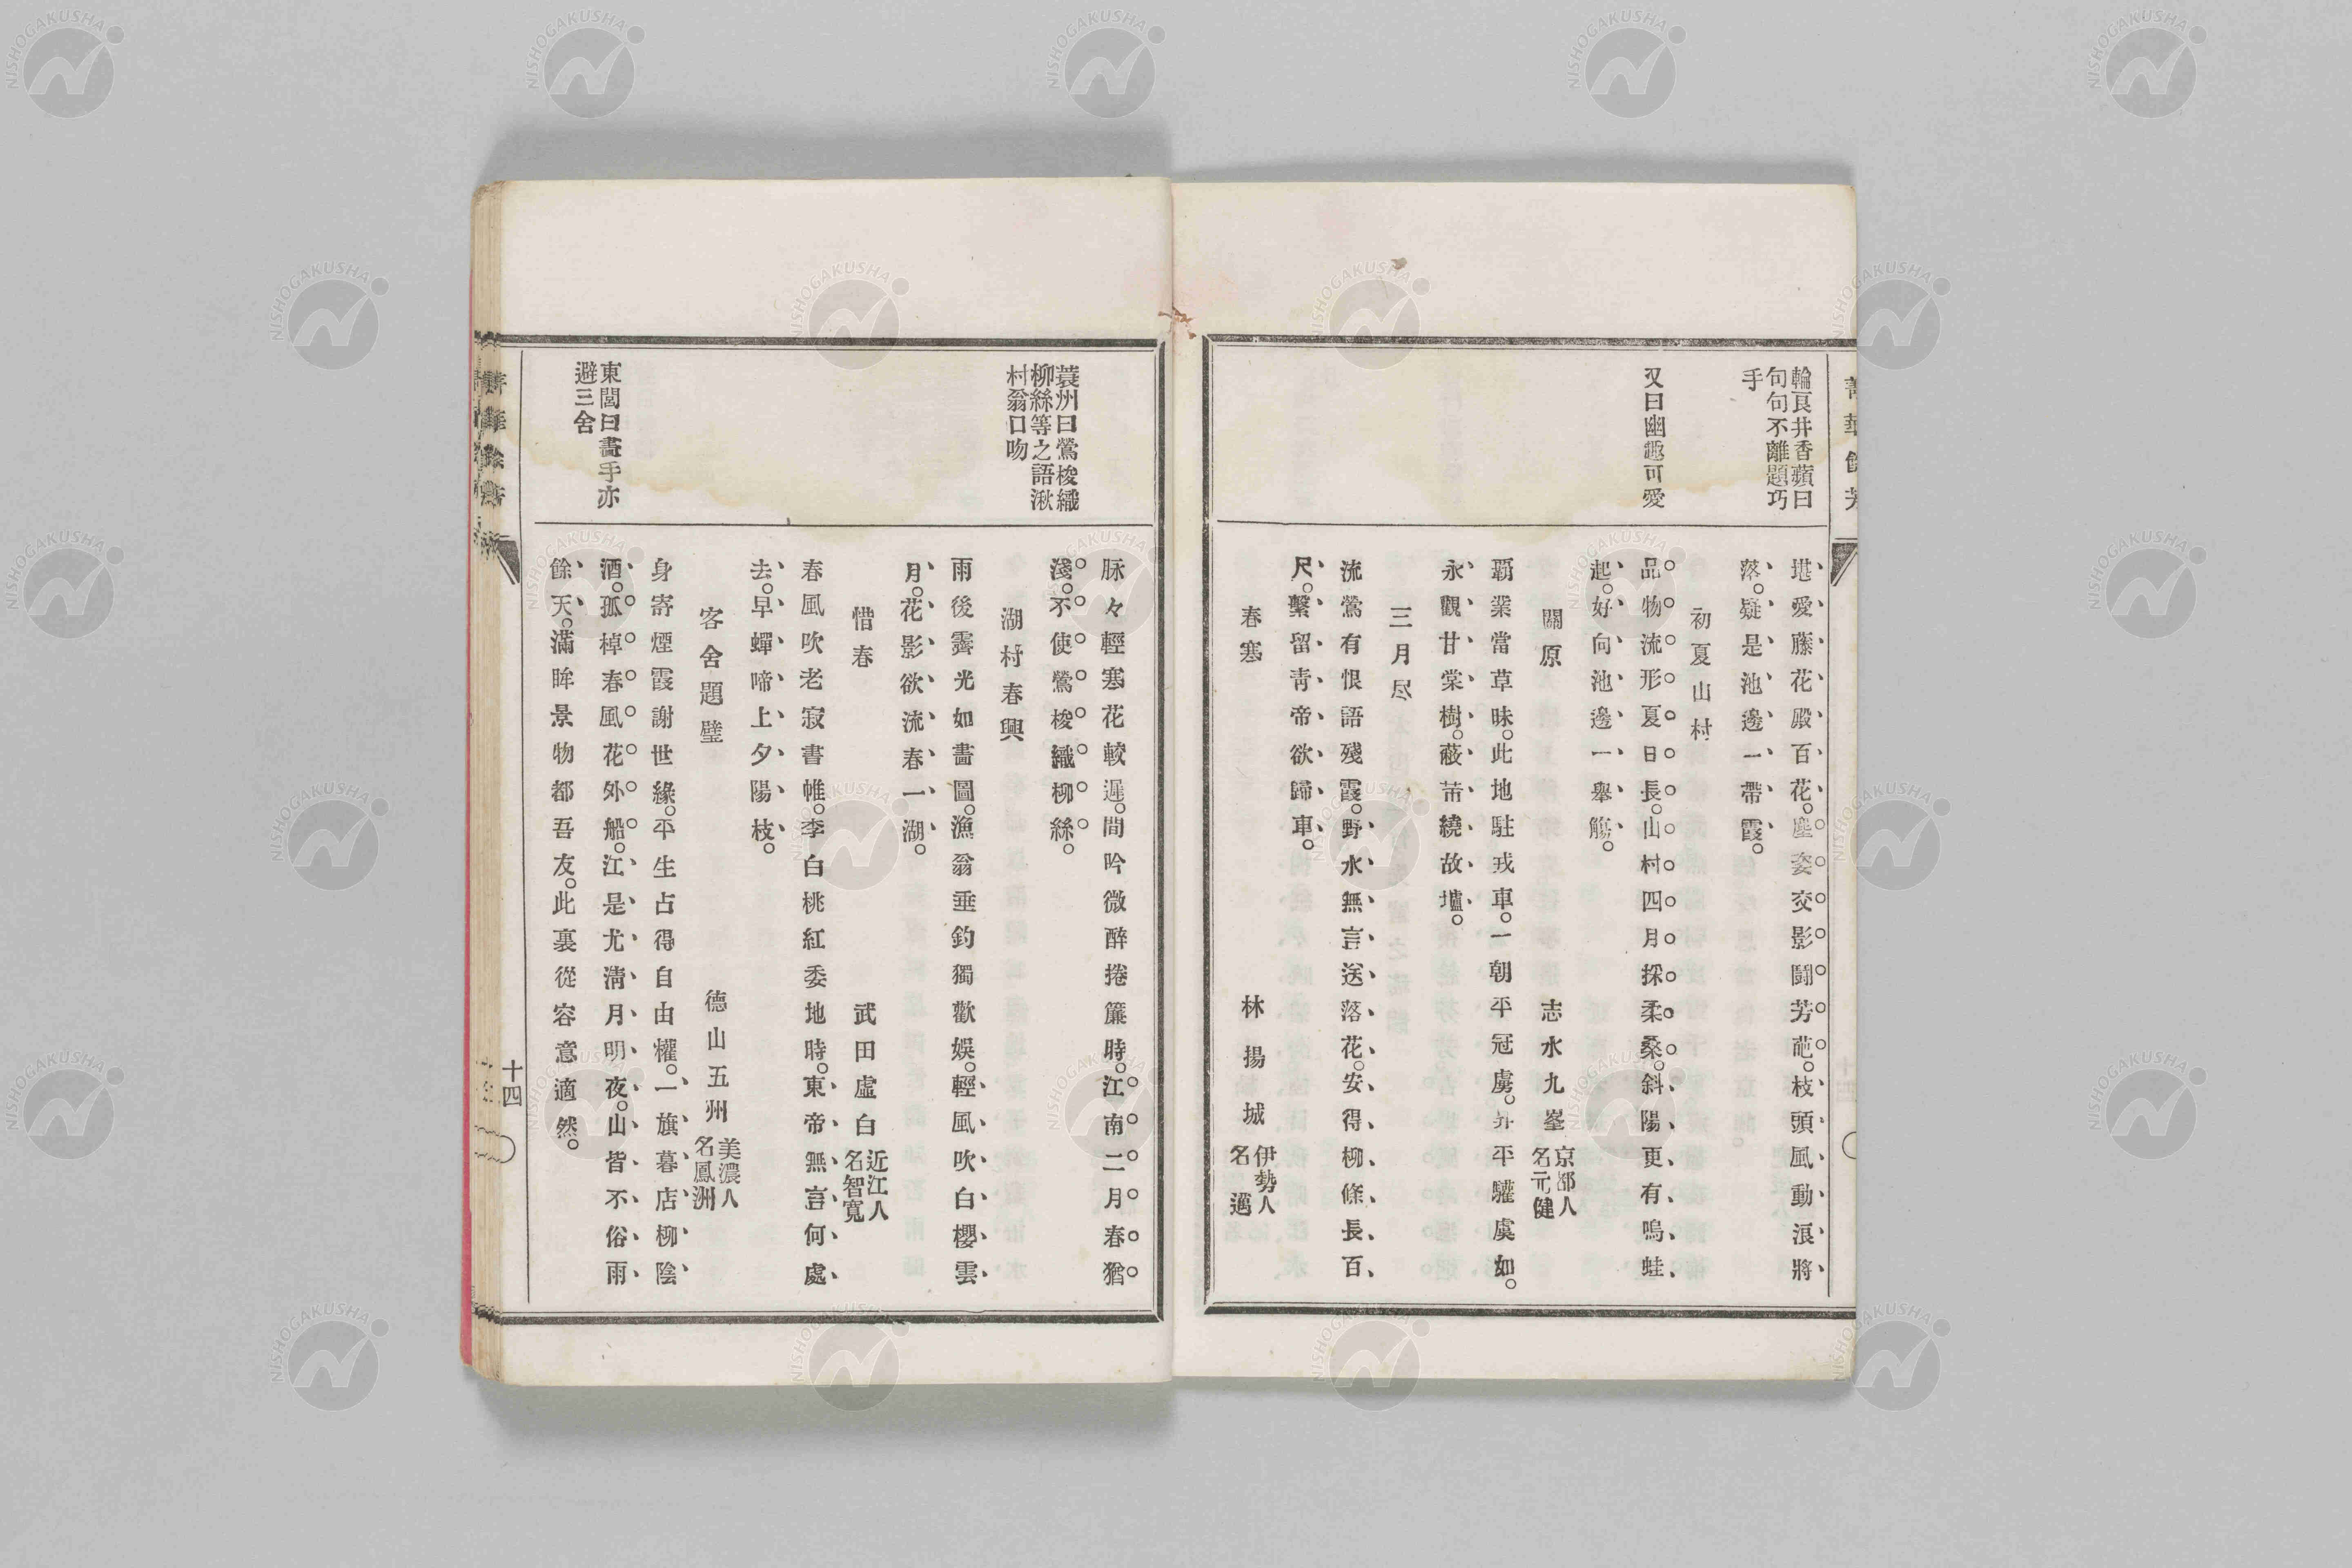 輪艮井香蘋曰
句句不離題巧
手
又曰幽趣可愛
堪愛藤花殿百花。塵姿交影鬪芳葩。枝頭風動浪將
落。疑是池邊一帶霞。
初夏山村
品物流形夏日長。山村四月採柔桑。斜陽更有鳴蛙
起。好向池邊一舉觴。
關原 志水九峯 京都人
名元健
覇業當草昧。此地駐戎車。一朝平冠虜。升平驩虞如。
永觀甘棠樹。蔽芾繞故墟。
三月尽
流鶯有恨語殘霞。野水無言送落花。安得柳條長百
尺。繫留靑帝欲歸車。
春寒 林揚城 伊勢人
名邁
蓑州曰鶯梭織
柳絲等之語湫
村翁口吻
東閭曰畫手亦
避三舍
脉々輕寒花較遲。間吟微醉捲簾時。江南二月春猶
淺。不使鶯梭織柳絲。
湖村春興
雨後霽光如畵圖。漁翁垂釣獨歡娛。輕風吹白櫻雲
月。花影欲流春一湖。
惜春 武田虛白 近江人
名智寬
春風吹老寂書帷。李白桃紅委地時。東帝無言何處
去。早蟬啼上夕陽枝。
客舍題壁 德山五州 美濃人
名鳳洲
身寄煙霞謝世緣。平生占得自由權。一旗暮店柳陰
酒。孤棹春風花外船。江是尤淸月明夜。山皆不俗雨
餘天。滿眸景物都吾友。此裏從容意適然。
十四
NISHOGAKUSHA